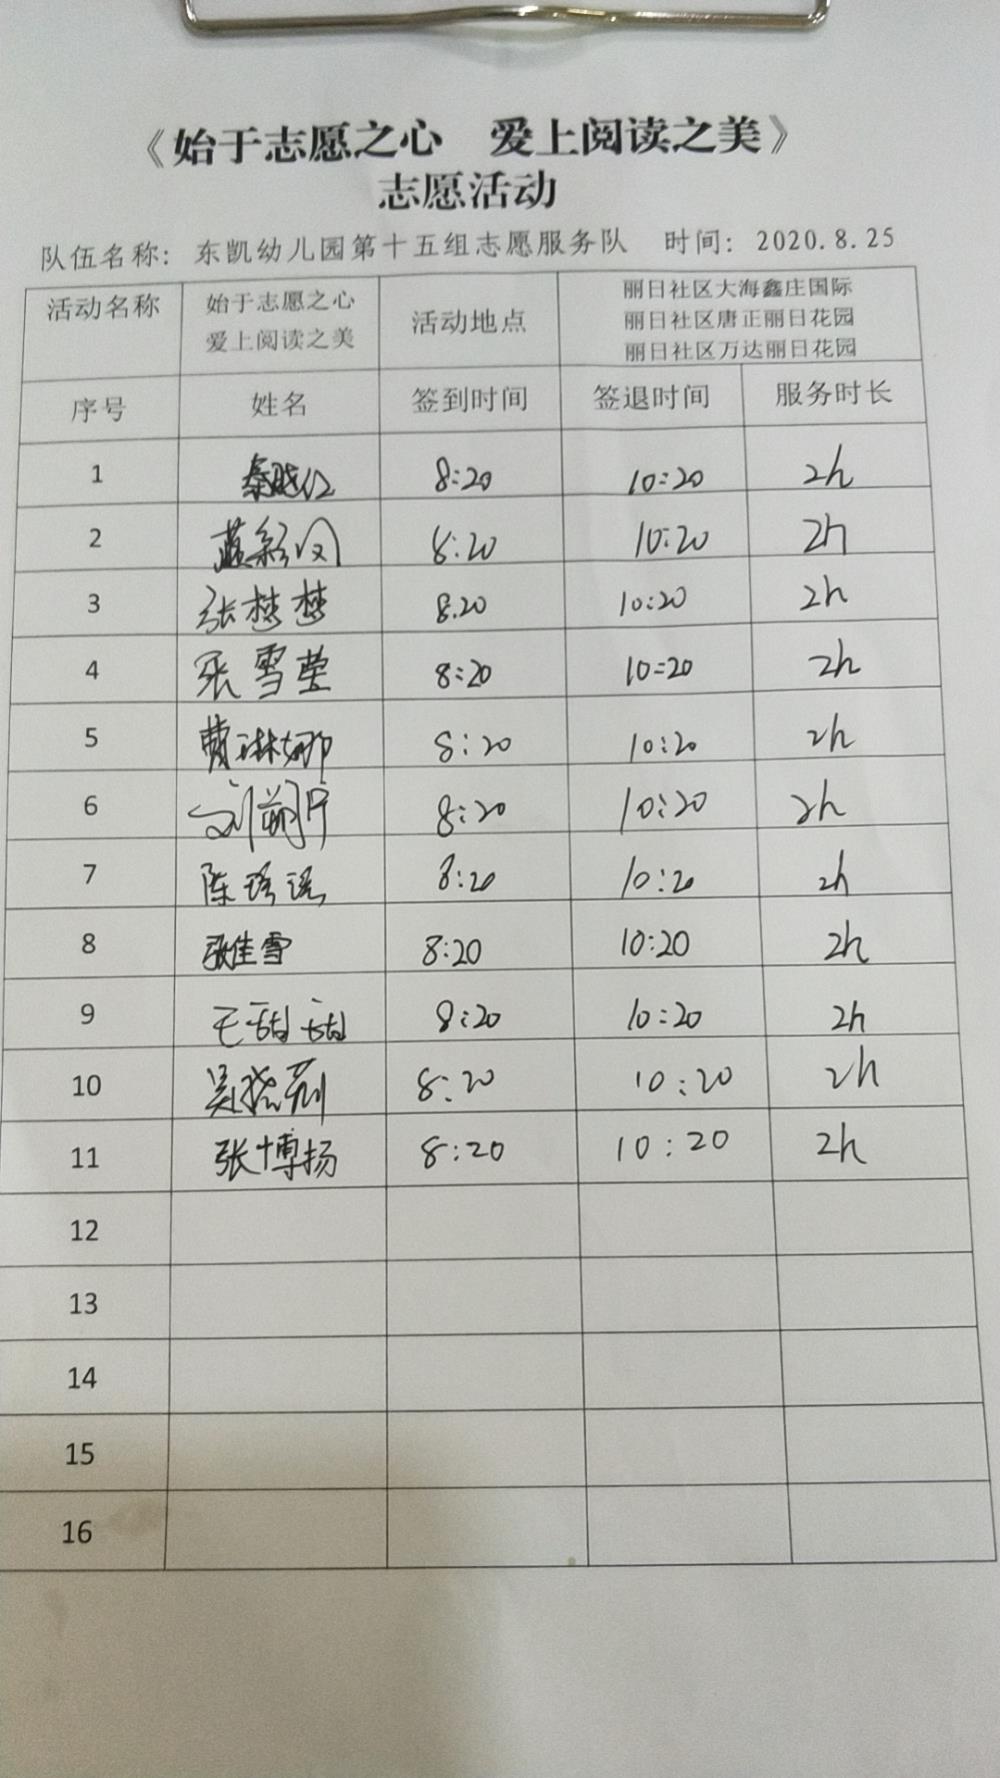 《始于志愿之心 爱上阅读之美》
志愿活动
队伍名称：东凯幼儿园第十五组志愿服务队 时间：2020.8.25
活动名称 始于志愿之心 爱上阅读之美 活动地点 丽日社区大海鑫庄国际
丽日社区唐正丽日花园
丽日社区万达丽日花园
序号 姓名 签到时间 签退时间 服务时长
1 秦晓红 8:20 10:20 2h
2 蓝彩凤 8:20 10:20 2h
3 张梦梦 8.20 10:20 2h
4 张雪莹 8:20 10:20 2h
5 曹琳娜 8:20 10:20 2h
6 刘 8:20 10:20 2h
7 陈瑶瑶 8:20 10:20 2h
8 张佳雪 8:20 10:20 2h
9 王甜甜 8:20 10:20 2h
10 吴晓 8:20 10:20 2h
11 张博扬 8:20 10:20 2h
12
13
14
15
16